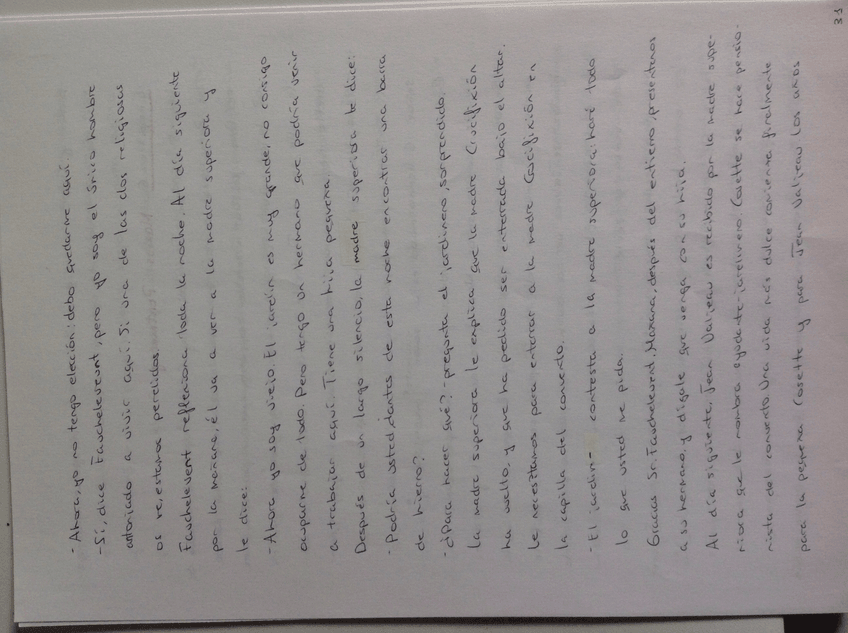 - Ahora, yo no tengo elección: debo quedarme aquí.
- Sí, dice Fauchelevent, pero yo soy el único hombre
autoriado a vivir aquí. Si una de las dos religiosas
os ve, estamos perdidos.
Fauchelevent reflexiona toda la noche. Al día siguiente
por la mañana, él va a ver a la madre superiora y
le dice:
- Ahora yo soy viejo. El jardín es muy grande, no consigo
ocuparme de todo. Pero tengo un hermano que podría venir
a trabajar aquí. Tiene una hija pequeña.
Después de un largo silencio, la madre superiora le dice:
- Podría usted, dantes de esta noche encontrar una barra
de hierro?
- ¿Para hacer qué? - pregunta el jardinero, sorprendido.
La madre superiora le explica que la madre Crucifixión
ha muerto, y que ha pedido ser enterrada bajo el altar.
Le necesitamos para enterrar a la madre Crucifixión en
la capilla del convento.
- El jardin- contesta a la madre superiora: haré todo
lo que usted me pida.
Gracias Sr. Fauchelevent, Manana, después del entierro, presentenos
a su hermano, y dígale que venga con su hija.
Al día siguiente, Jean Valjean es recibido por la madre supe-
riora que le nombra ayudante-jardinero Cosette se hace pensio-
nista del convento. Una vida más dulce comienza finalmente
para la pequeña Cosette y para Jean Valjean los años
31